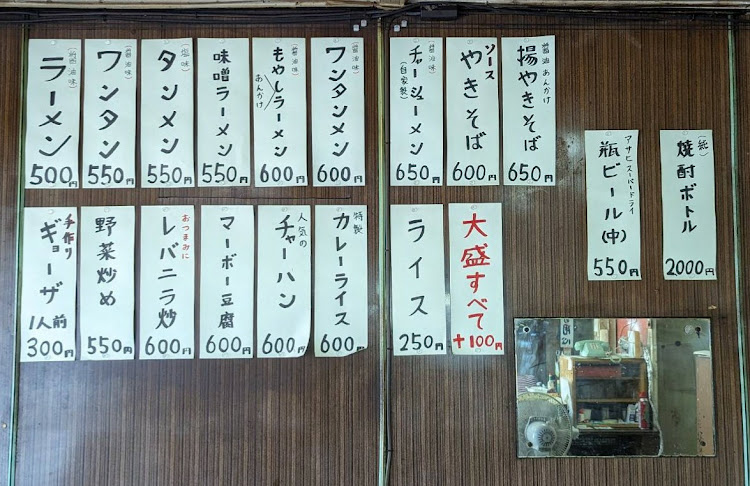 (醤油味)
ラーメン
500円
(醤油味)
ワンタン
550円
(塩味)
タンメン
550円
味噌ラーメン
550円
(醤油味)
もやしラーメン
あんかけ
600円
(醤油味)
ワンタンメン
600円
(醤油味)
チャーシューメン
(自家製)
650円
ソース
やきそば
600円
醤油あんかけ
揚やきそば
650円
アサヒスーパードライ
瓶ビール(中)
550円
焼酎ボトル
2000円
手作り
ギョーザ
1人前
300円
野菜炒め
550円
おつまみに
レバニラ炒
600円
マーボー豆腐
600円
人気の
チャーハン
600円
特製
カレーライス
600円
ライス
250円
大盛すべて
+100円